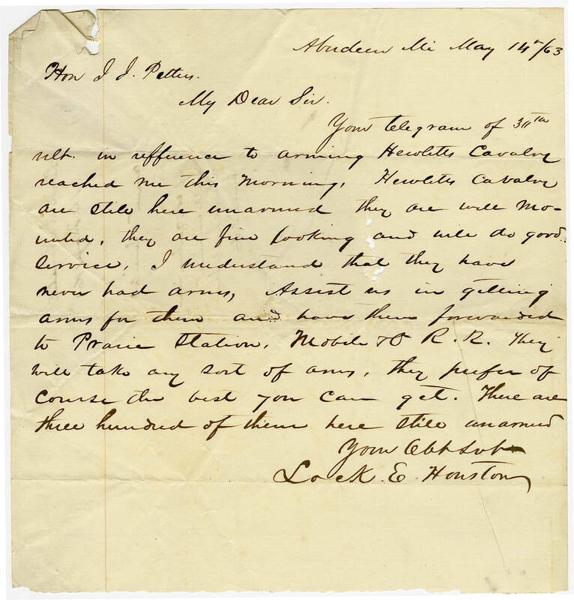 Aberdeen Mi May 14th/63
Hon J. J. Pettus.
My Dear Sir.
Your telegram of 30th
ult. in refference to arming Hewletts Cavalry
reached me this morning, Hewletts Cavalry
are still here unarmed they are well mo-
unted, they are fine looking and will do good
service, I understand that they have
never had arms, Assist us in getting
arms for them and have them forwarded
to Prairie Station, Mobile & O R. R. They
will take any sort of arms, they prefer of
course the best you can get. There are
three hundred of them here still unarmed
Your Obt Svt
Lock. E. Houston